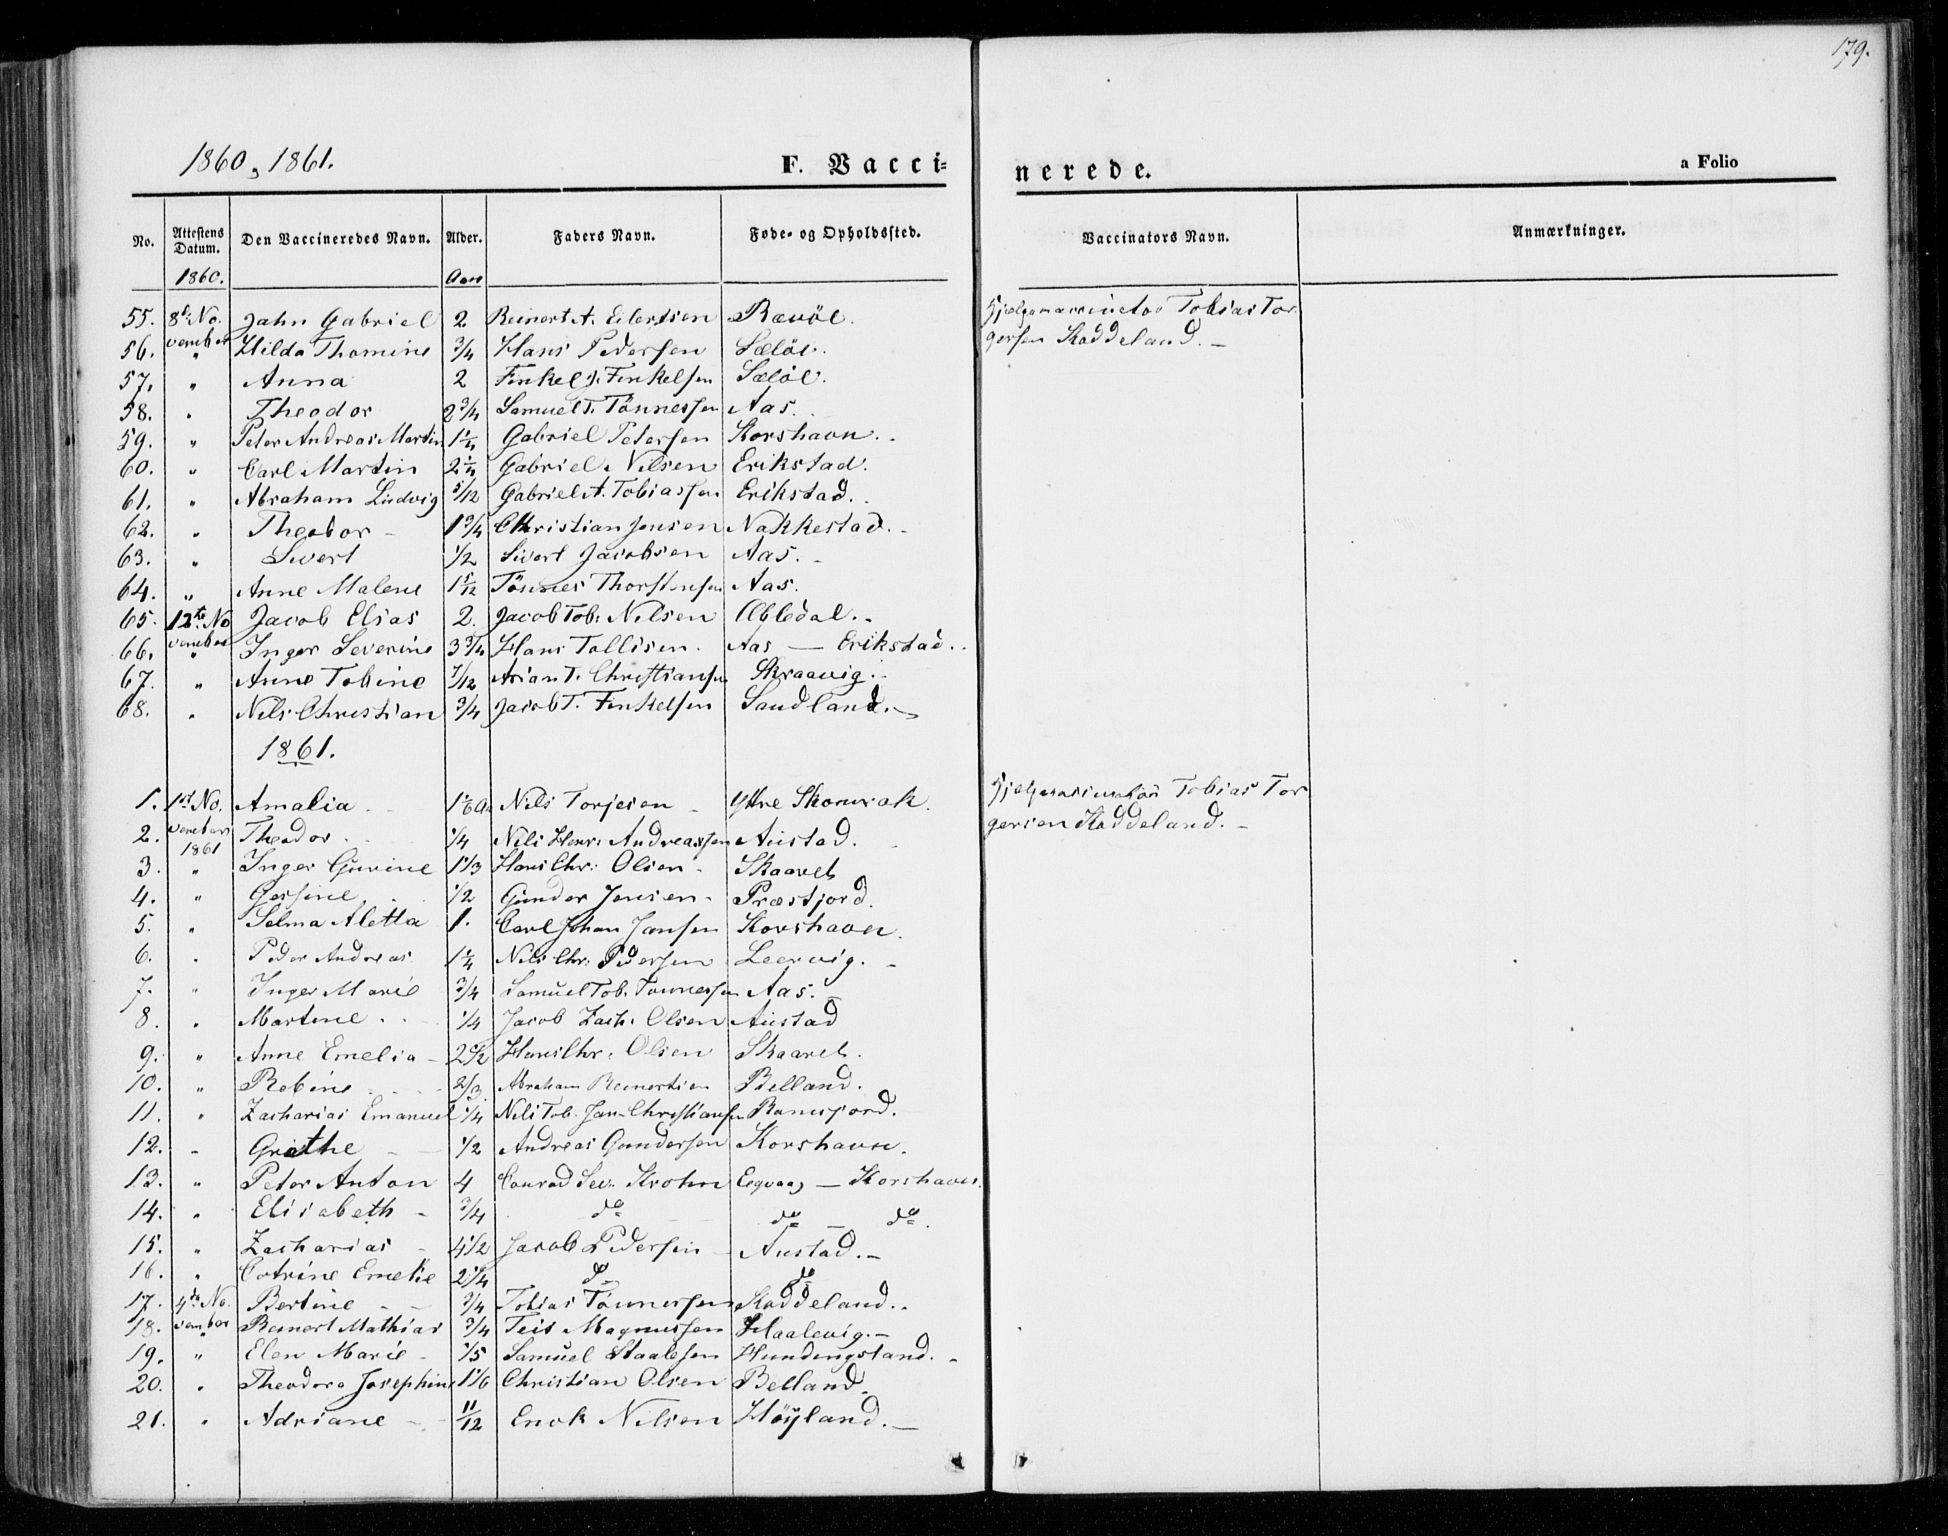 179.
1860, 1861. F. Vaccinerede. a Folio
No. Attestens Datum. Den Vaccineredes Navn. Alder. Faders Navn. Føde- og Opholdssted. Vaccinators Navn. Anmærkninger.
1860. Aar
55. 8de No- Jahn Gabriel 2 Reinert A. Eilertsen Rævöe. Hjelpevaccinatør Tobias Tor-
56. vember " Hilda Thomine 3/4 Hans Pedersen Sælöe. gersen Kaddeland. -
57. " Anna 2 Finkel J. Finkelsen Sælöe.
58. " Theodor 2 3/4 Samuel T. Tönnessen Aas.
59. " Peter Andreas Martin 1 1/4 Gabriel Petersen Korshavn.
60. " Carl Martin 2 1/4 Gabriel Nilsen Erikstad.
61. " Abraham Ludvig 5/12 Gabriel A. Tobiassen Erikstad.
62. " Theodor - 1 3/4 Christian Jensen Nakkestad. -
63. " Sivert 1/2 Sivert Jacobsen Aas. -
64. " Anne Malene 1 5/12 Tönnes Thorstensen Aas.
65. 12te No- Jacob Elias 2. Jacob Tob: Nilsen Æbledal. -
66. vember " Inger Severine 3 3/4 Hans Tollisen. Aas — Erikstad.
67. " Anne Tobine 7/12 Arian T. Christiansen Skraavig.
68. " Nils Christian 3/4 Jacob T. Finkelsen Sandland. -
1861.
1. 1st No- Amalia 1 1/6 a Nils Torjesen - Yttre Skomrak. Hjelpevaccinatør Tobias Tor-
2. vember 1861 Theodor 1/4 Nils Henr: Andreassen Austad. gersen Kaddeland. -
3. " Inger Gurine 1 1/3 Hans Chr: Olsen - Skaaret
4. " Gesine 1/2 Gunder Jensen - Præstjord.
5. " Selma Aletta 1. Carl Johan Jansen Korshavn.
6. " Peder Andreas 1 1/4 Nils Chr: Pedersen Leervig. -
7. " Inger Marie 3/4 Samuel Tob. Tönnessen Aas. -
8. " Martine 1/4 Jacob Zach: Olsen Austad
9. " Anne Emelia - 2 1/2 Hans Chr: Olsen Skaaret.
10. " Rebine 2/3 Abraham Reinertsen Belland.
11. " Zacharias Emanuel 1/4 Nils Tob. Jan-Christiansen Ramsjord.
12. " Grethe 1/2 Andreas Gundersen Korshavn.
13. " Peter Anton 4 Conrad Sev. Krohn Eegvaag — Korshavn.
14. " Elisabeth - 3/4 do do — do.
15. " Zacharias - 4 1/2 Jacob Pedersen - Austad. -
16. " Catrine Emelie 2 1/4 do do
17. 4de No- Bertine 3/4 Tobias Tönnessen Kaddeland.
18. vember " Reinert Mathias 3/4 Teis Magnussen Haalevig. -
19. " Elen Marie - 1/5 Samuel Staalesen Hundingsland. -
20. " Theodora Josephine 1 1/6 Christian Olsen Belland.
21. " Adriane 11/12 Enok Nilsen Höyland. —